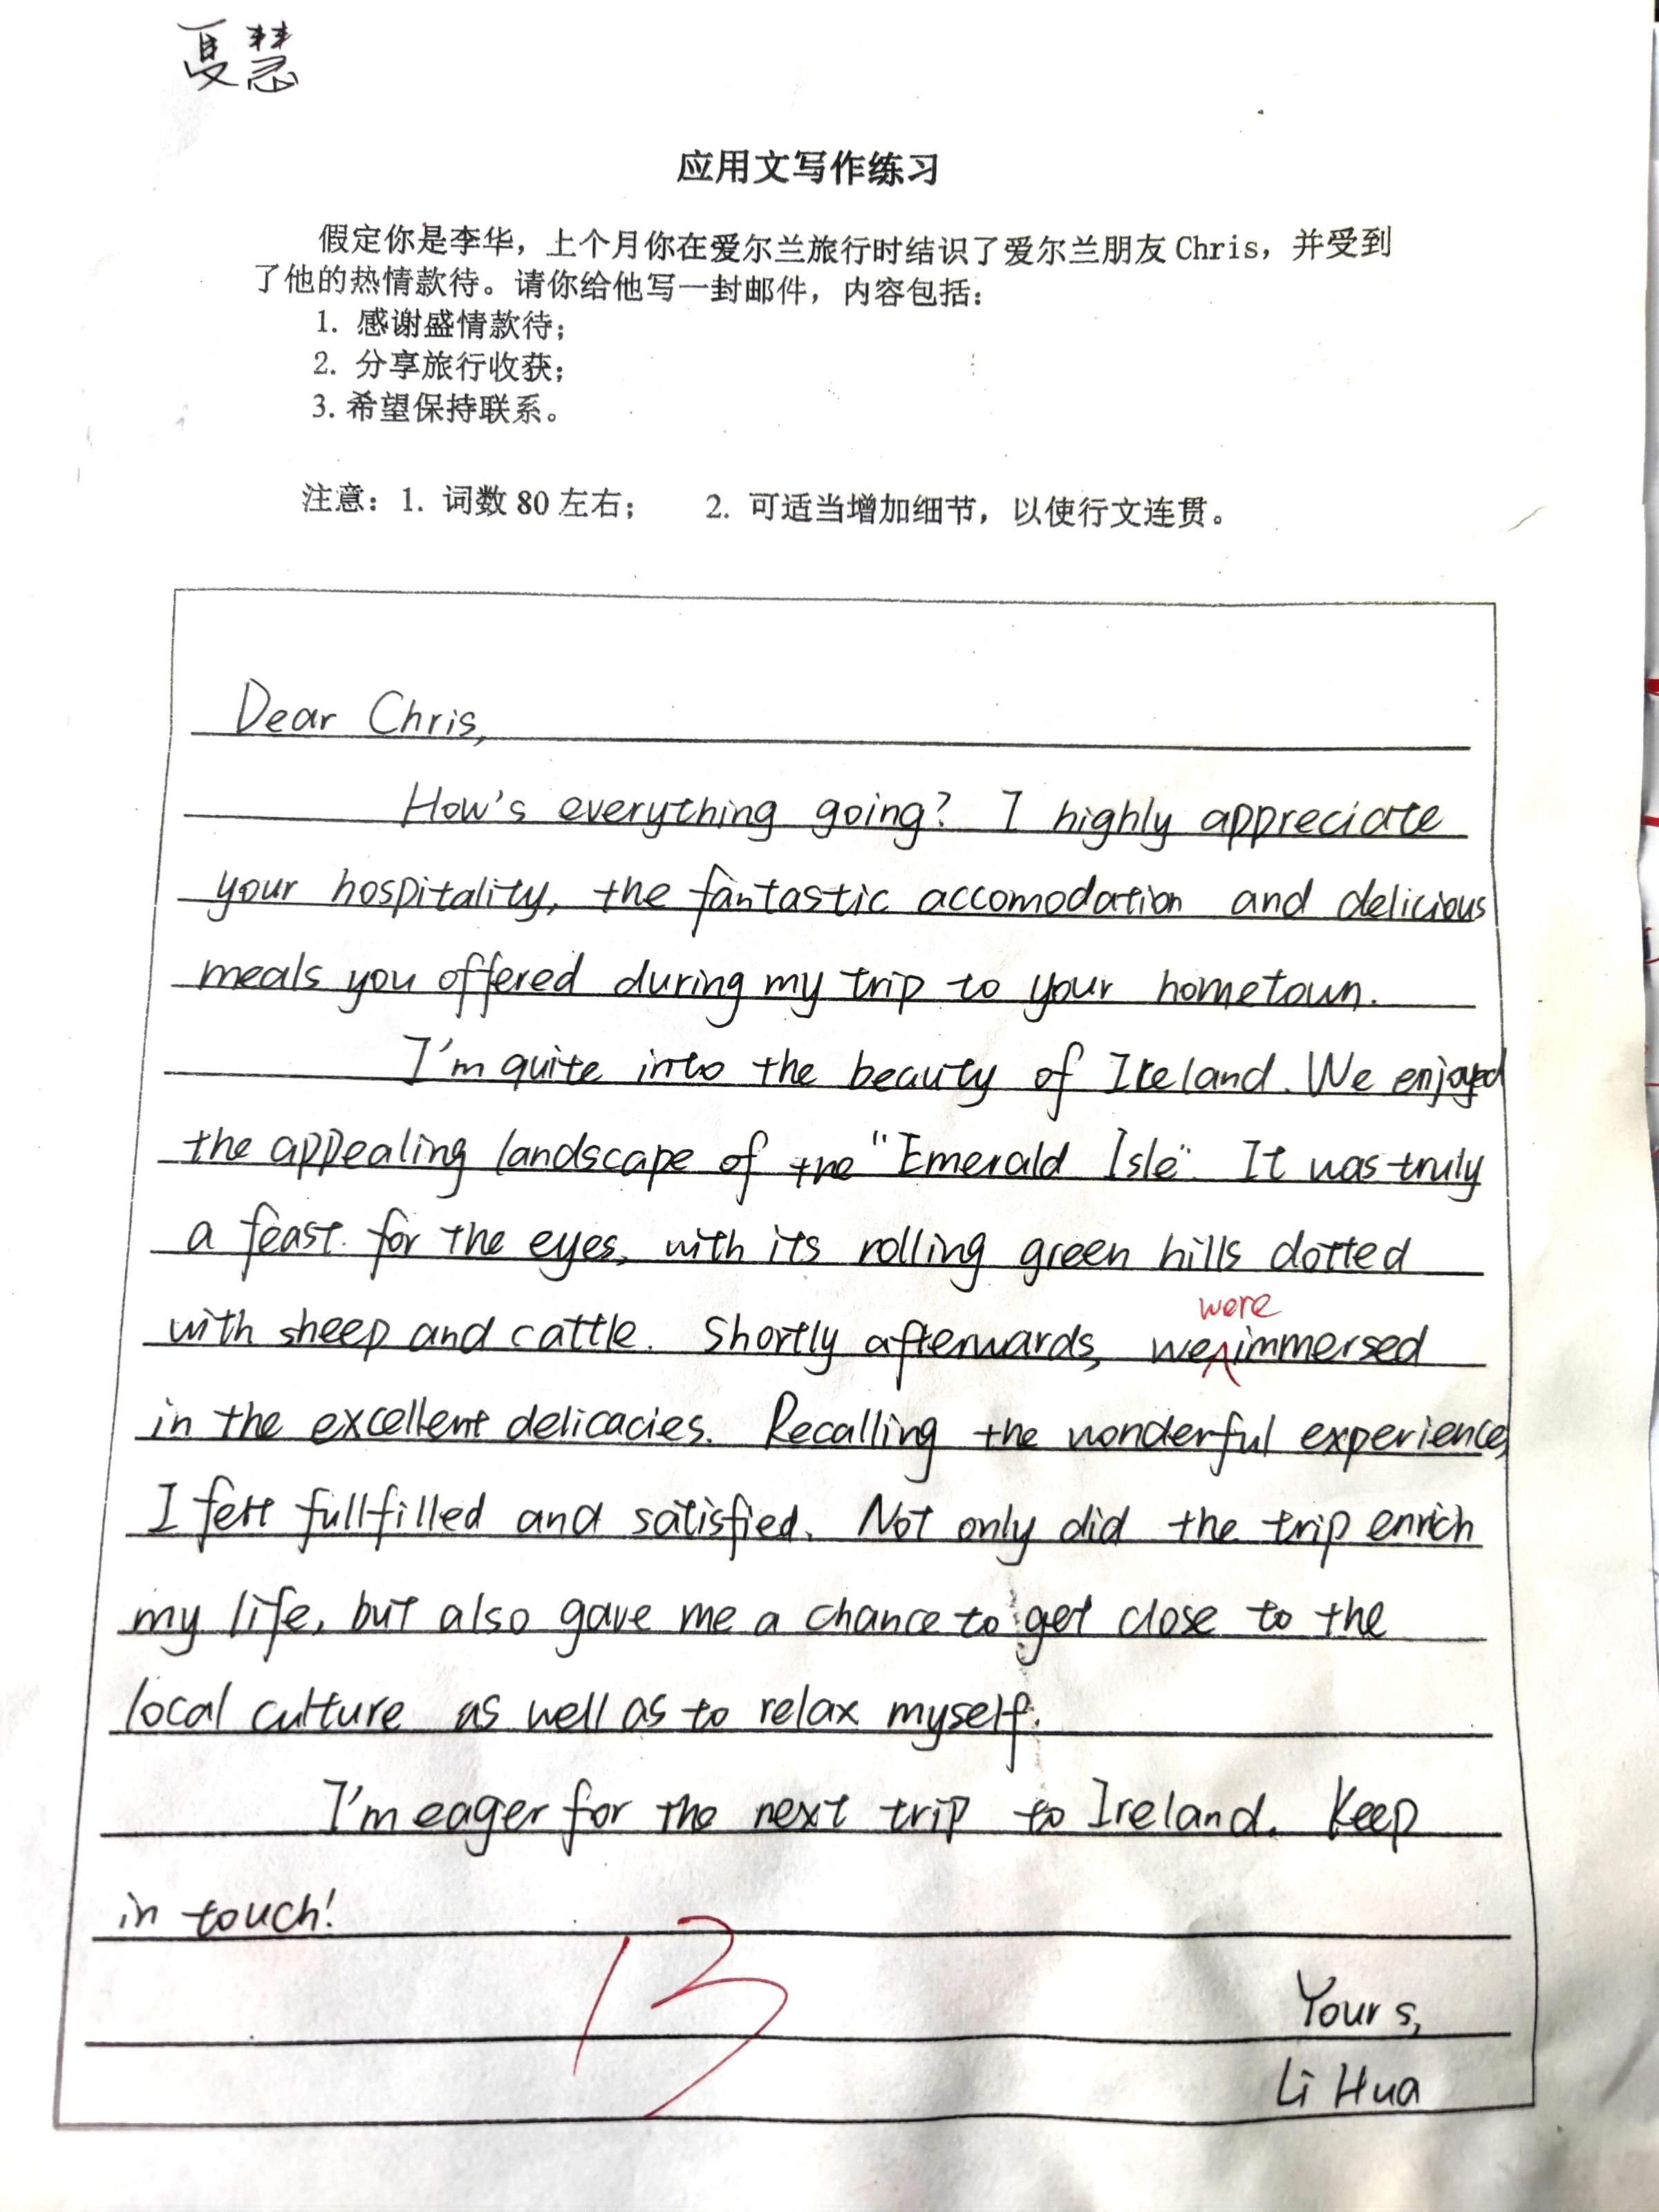 夏慧
应用文写作练习
假定你是李华，上个月你在爱尔兰旅行时结识了爱尔兰朋友Chris，并受到
了他的热情款待。请你给他写一封邮件，内容包括：
1. 感谢盛情款待；
2. 分享旅行收获；
3. 希望保持联系。
注意：1. 词数 80 左右； 2. 可适当增加细节，以使行文连贯。
Dear Chris,
How's everything going? I highly appreciate
your hospitality, the fantastic accomodation and delicious
meals you offered during my trip to your hometown.
I'm quite into the beauty of Ireland. We enjoyed
the appealing landscape of the "Emerald Isle". It was truly
a feast for the eyes, with its rolling green hills dotted
were
with sheep and cattle. Shortly afterwards, we immersed
in the excellent delicacies. Recalling the wonderful experience,
I felt fullfilled and satisfied. Not only did the trip enrich
my life, but also gave me a chance to get close to the
local culture as well as to relax myself.
I'm eager for the next trip to Ireland. Keep
in touch!
13
Yours,
Li Hua